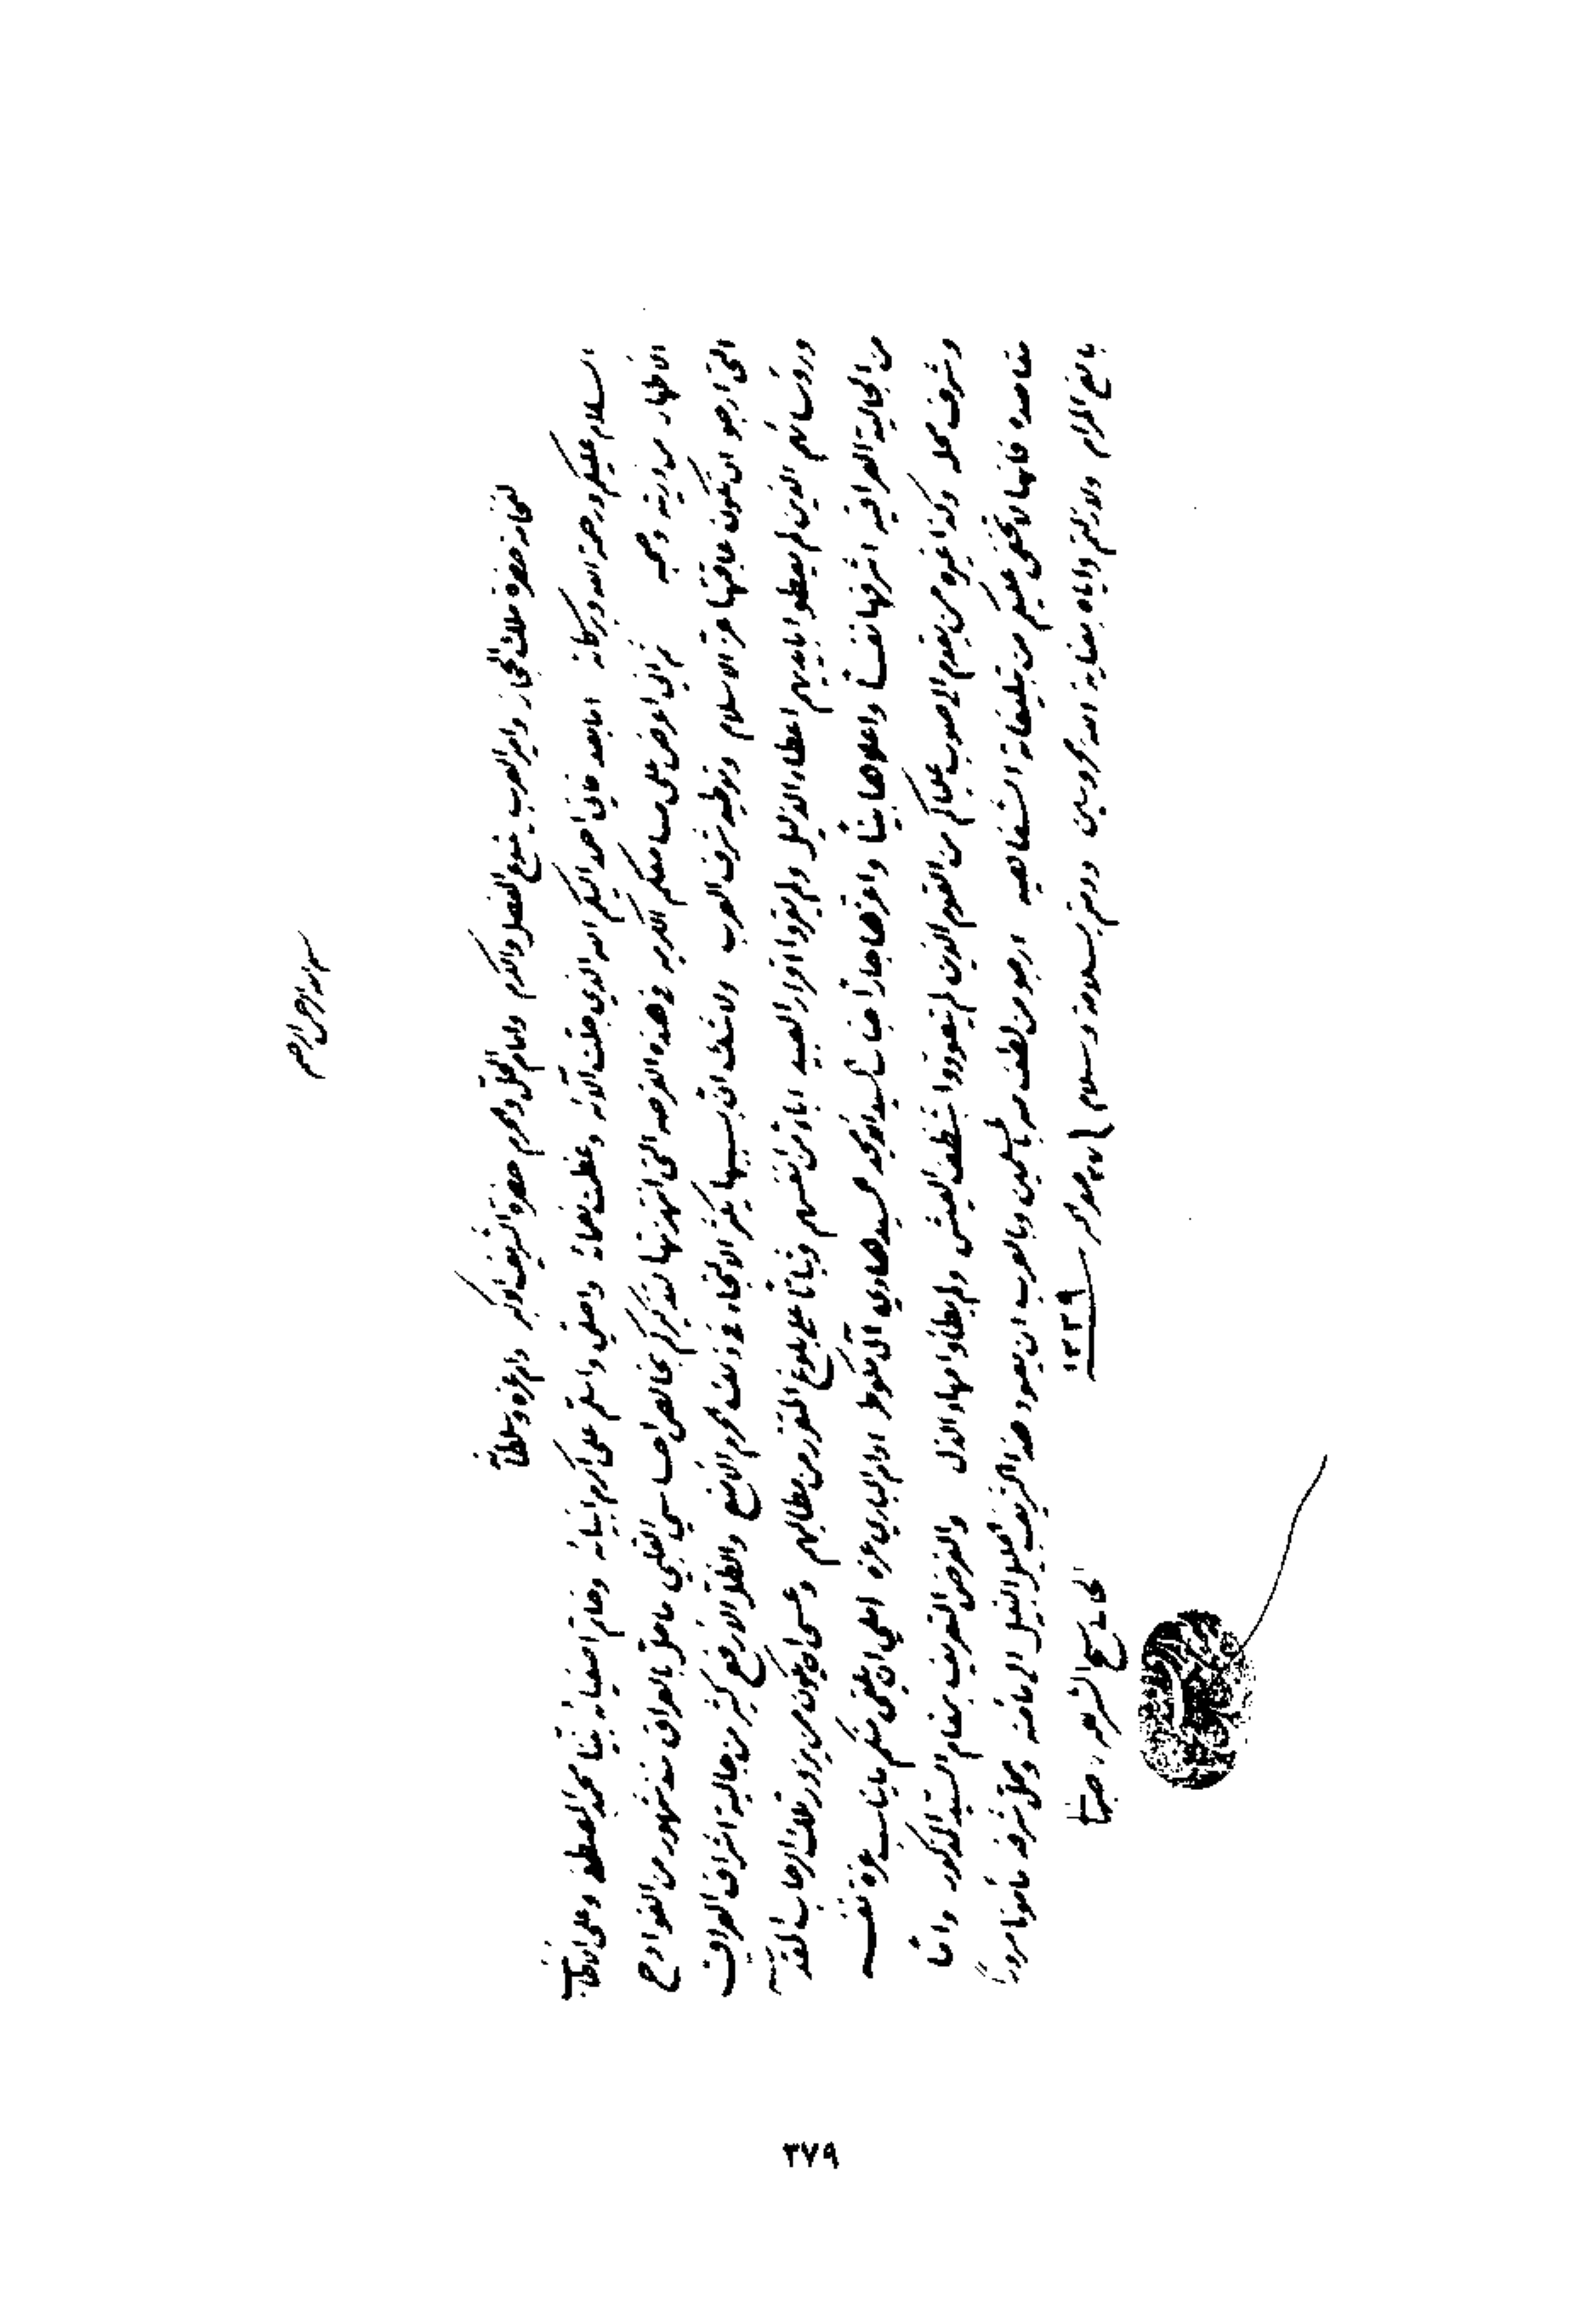 بسم الله الرحمن الرحيم
لفخامة حضرة ملك الحجاز وامير العرب ينبوع الفضل والكرم وامام الحل والحرم حضرة الشريف الاكبر دام عزه وسلطانه
السلام عليكم ورحمة الله وبركاته اما بعد فاني احمد اليكم الله الذي جلت آلائه وعظمت نعمائه واصلي واسلم على اكرم انبيائه وخاتم اصفيائه نبينا محمد المصطفى وعلى
الاطهار من ذريته وصحبه ثم اني اعرض على مسامعكم الكريمه في هذه الفرصه التي انتهزتها لتذكيركم بخالص احساسي القلبي ما حل بالعراق منذ شهور من الفوادح
التي ارجو ان تكون عاقبتها عز الاسلام وتوطيد شرف العرب ولا شك ان بسببها يكثر الالتجاء في ذلك الحرم الامنع والظل الارفع كثير من جالية اشراف العراق
ورؤسائهم الذين لم يعطوا بايديهم اعطاء الذليل ولم يقروا اقرار العبيد اباء من انفسهم وثباتا على بلوغ المقرر من مطالبهم وعسى ان يكون من يزور تلك الرحاب المقدسة
من الجالية العراقيه اشرفها نفسا واعلاها بيتا واعزها جارا جناب السيد نور نجل السيد هادي آل مكوطر ادام الباري عزه املي ان يلقى منكم ما يناسب عزة نفسه
وشرف محله وكذا غيره من يقدم الى صوب علياكم من القوم الذين لم يتعودوا شظف العيش ولم يطأوا مهاد الذل والغرض التعريف بمقام السيد المذكور واما
مقاصده فانها لا تخفى عليكم من تبليغاته الشفاهيه ارجو من لطف الله بالمسلمين وبالعرب ان يعود هذا الشريف الجليل النبيل الى مأمنه ومحل شرفه مأمونا مسرورا
بالغ المرام ولا زلتم واياه بعناية الله محروسين ودمتم بسلامة وسلام
١٣٣٩
٣٧٩